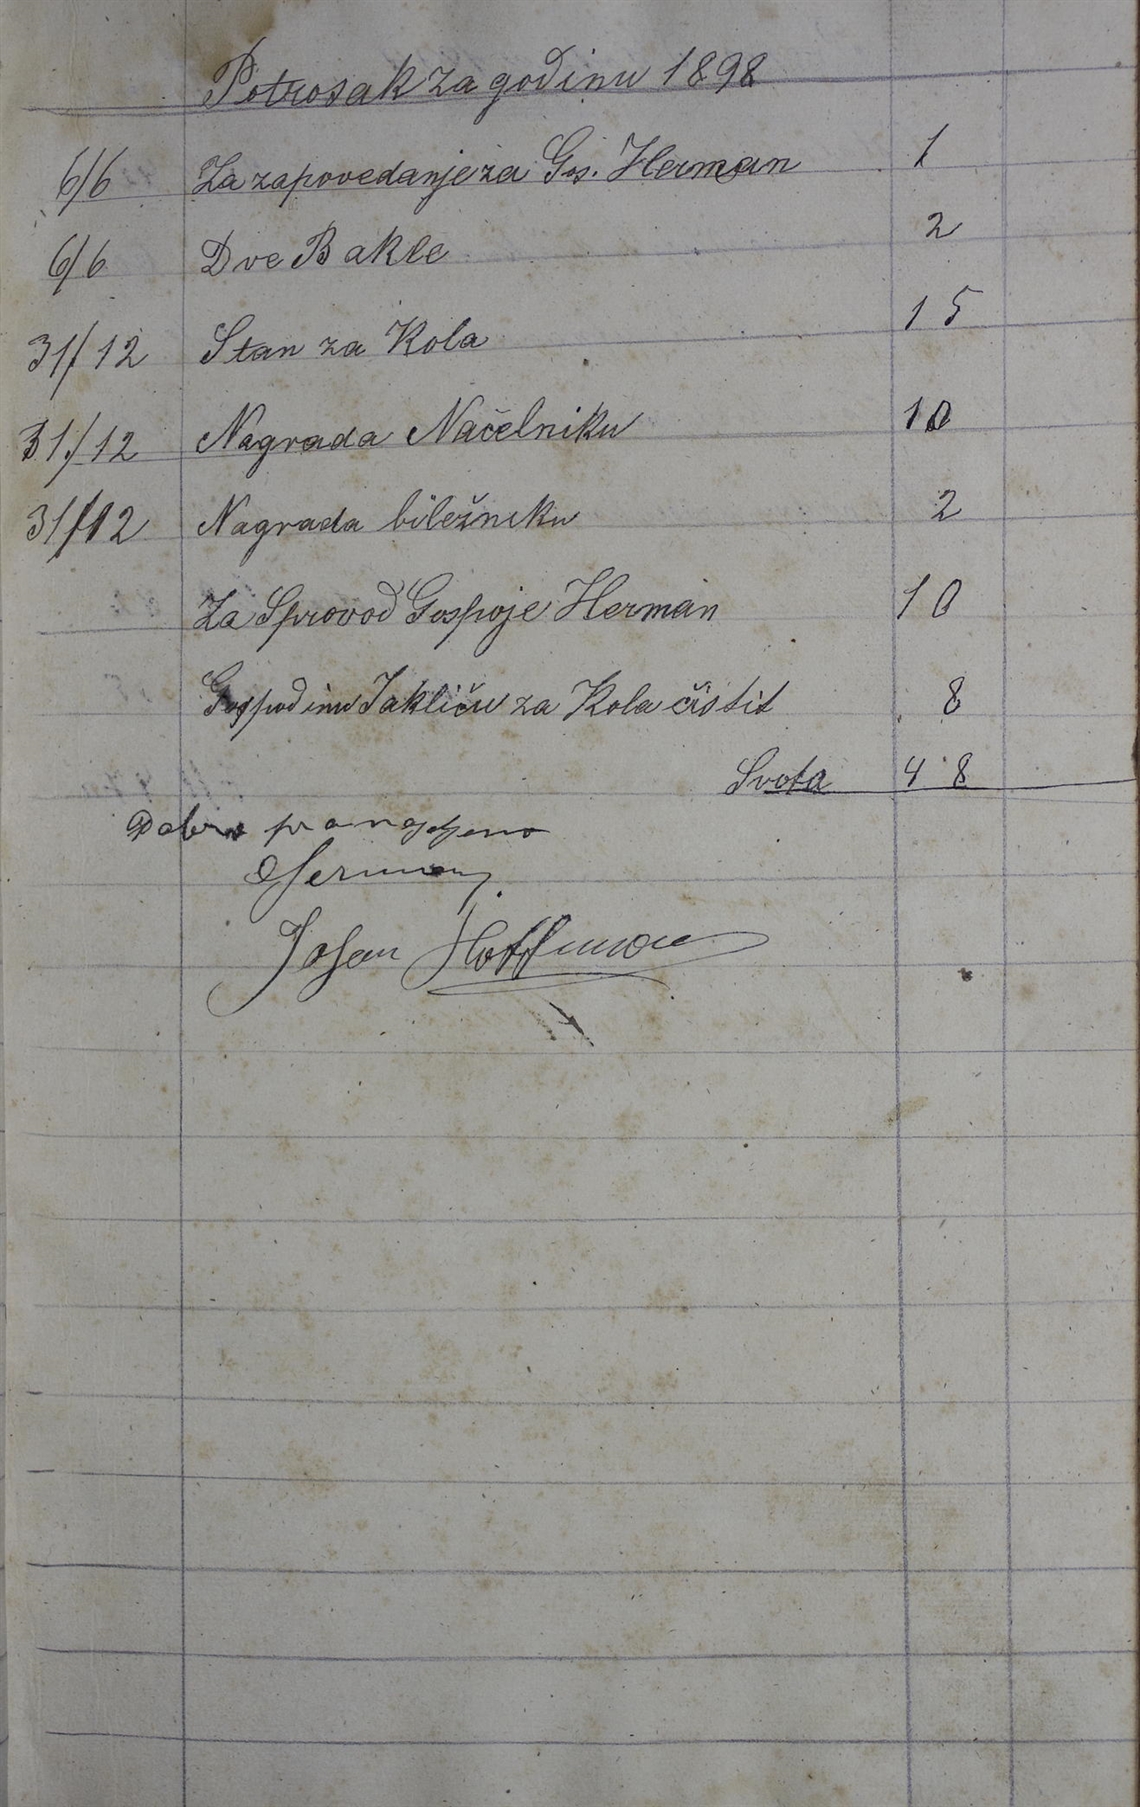 Potrosak za godinu 1898
6/6 Za zapovedanje za Gos. Herman 1
6/6 Dve Bakle 2
31/12 Stan za Kola 15
31/12 Nagrada Načelniku 10
31/12 Nagrada biležniku 2
Za Sprovod Gospoje Herman 10
Gospodinu Jakliču za Kola čistit 8
Svota 48
Dobro pronadjeno
Herman
Johan Hoffman